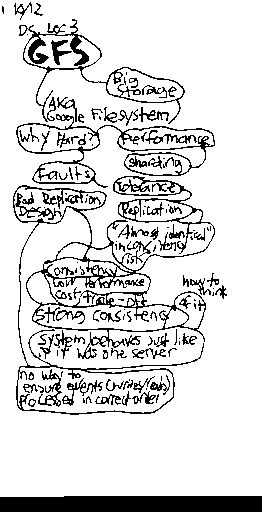 10/12
DS Lec 3
GFS
Big
Storage
AKA
Google Filesystem
Why Hard?
Performance
sharding
Faults
tolerance
Bad Replication
Design
Replication
"Almost identical"
inconsistency
risk
Consistency
Low Performance
Cost trade-off
how to
think
of it
Strong consistency
System behaves just like
if it was one server
no way to
ensure events (writes/
processed in correct order